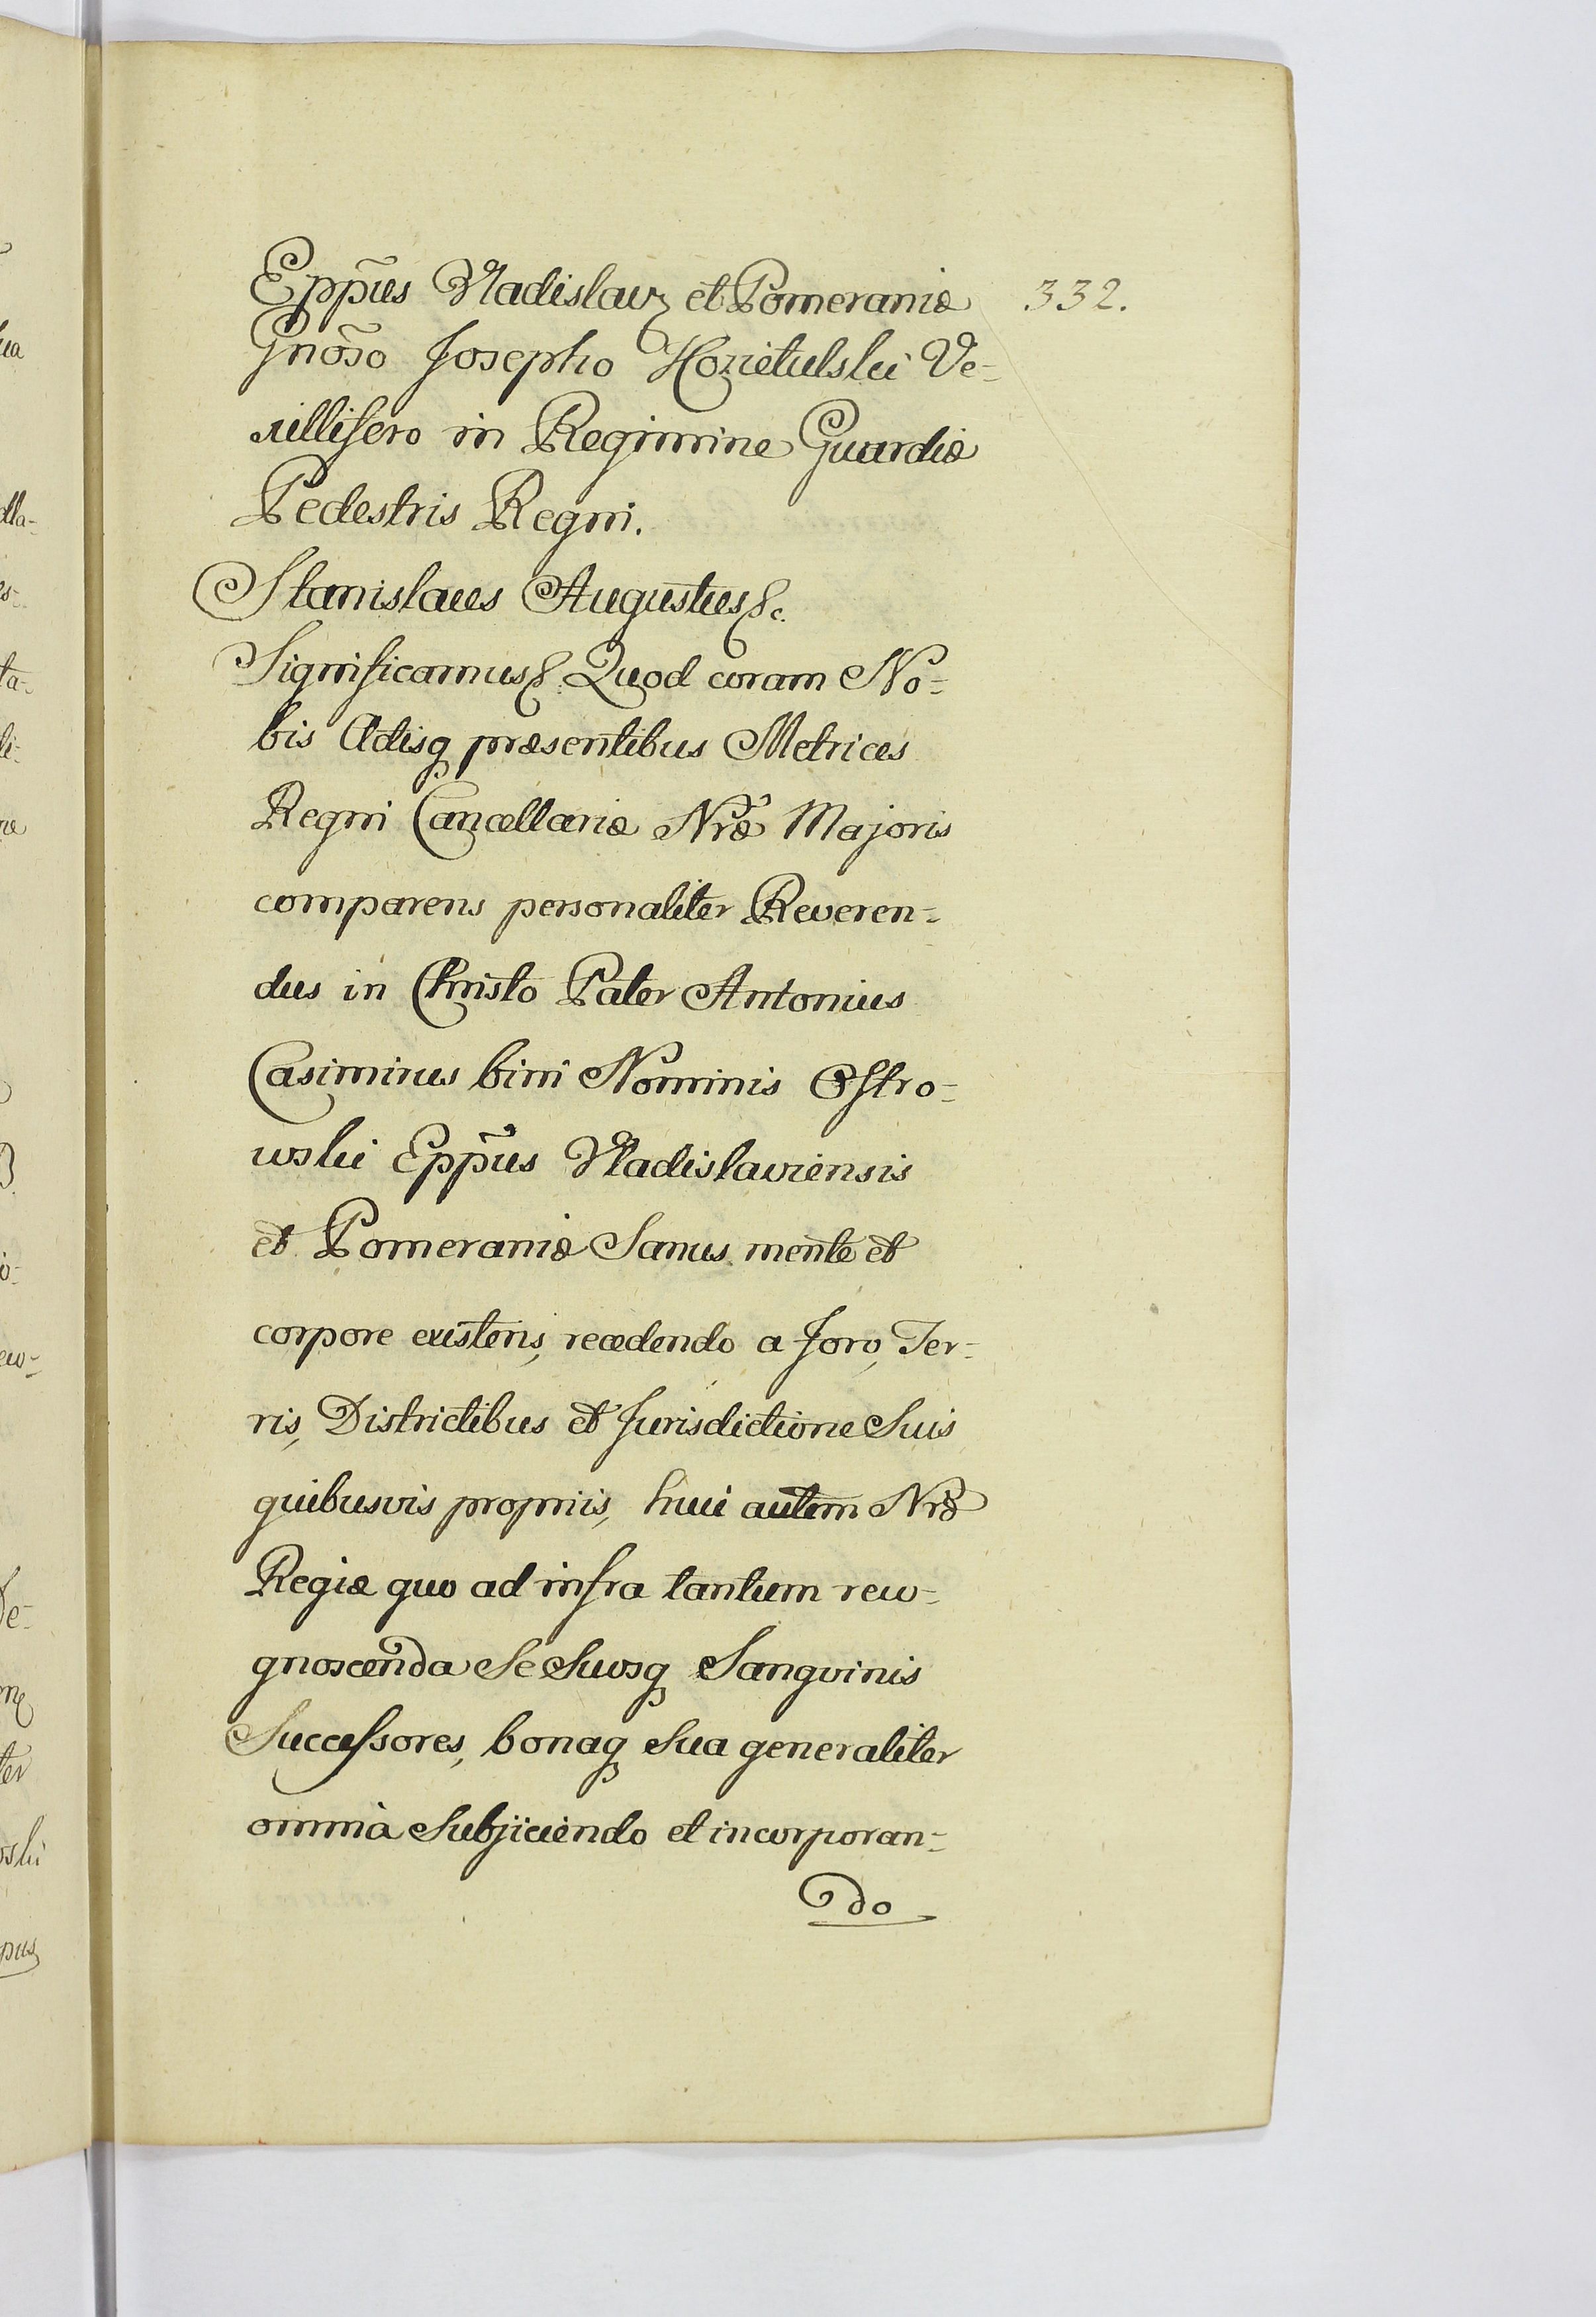 Epp̃us Vladislavꝫ et Pomeraniæ 332.
Gnõso Josepho Kozietulski Ve-
xillifero in Regimine Guardiæ
Pedestris Regni.
Stanislaus Augustus &c.
Significamus & Quod coram No-
bis Actisq præsentibus Metrices
Regni Cancellariæ Nræ̃ Majoris
comparens personaliter Reveren-
dus in Christo Pater Antonius
Casimirus bini Nominis Ostro-
wski Epp̃us Vladislaviensis
et Pomeraniæ Sanus mente et
corpore existens, recedendo a foro, Ter-
ris, Districtibus et Jurisdictione Suis
quibusvis propriis, huic autem Nræ
Regiæ quo ad infra tantum reco-
gnoscenda Se Suosq Sangvinis
Successores, bonaq Sua generaliter
omnia Subjiciendo et incorporan-
do